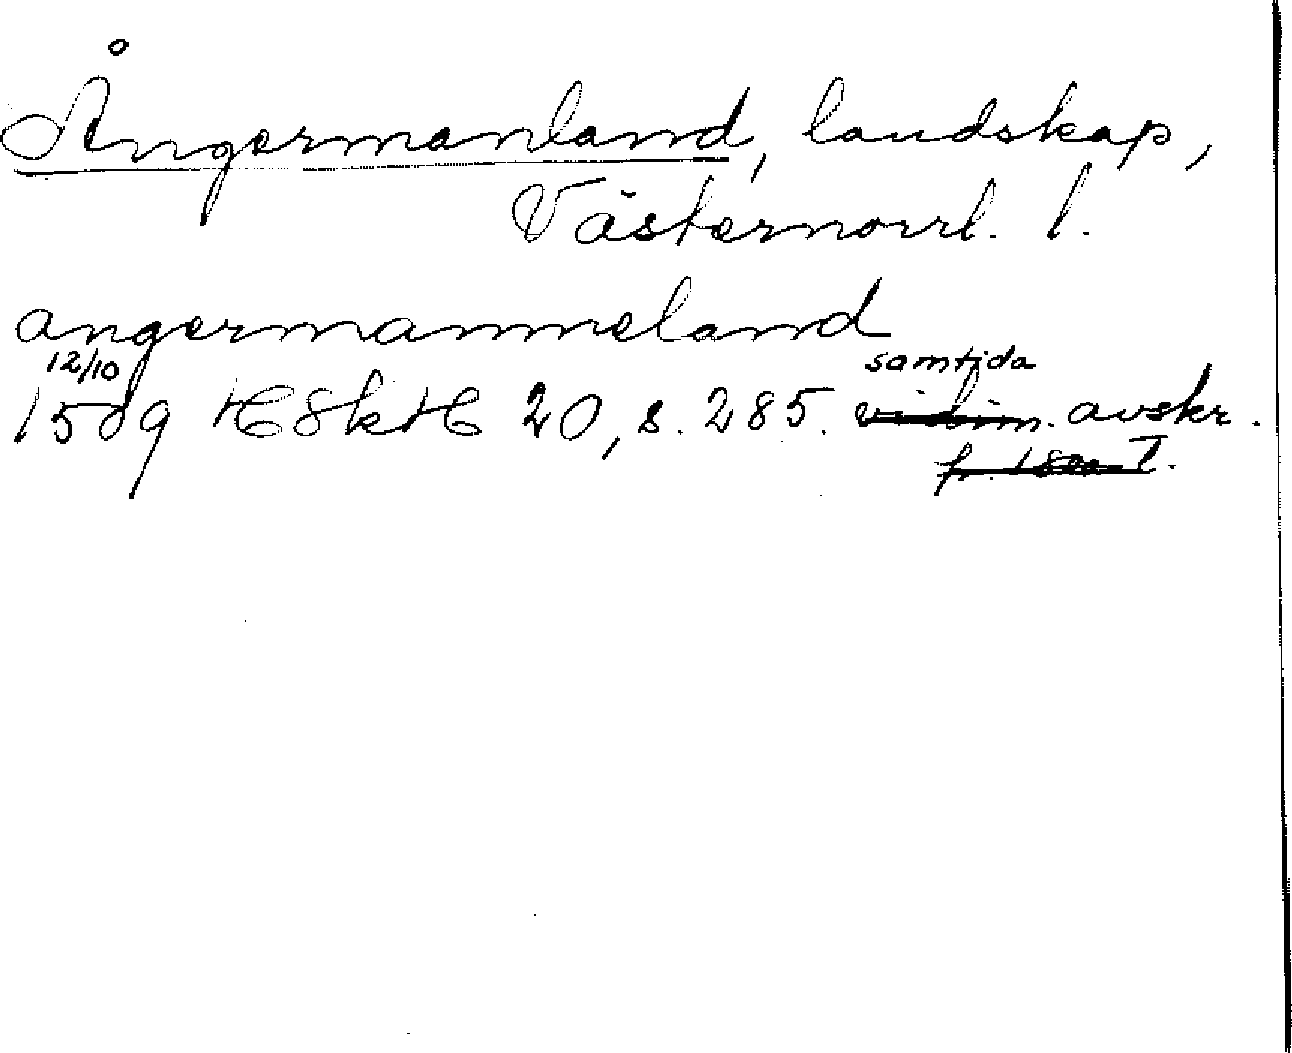 Ångermanland, landskap,
Västernorrl. l.
angermanneland
12/10
1509 HSkH 20, s. 285. samtida avskr.